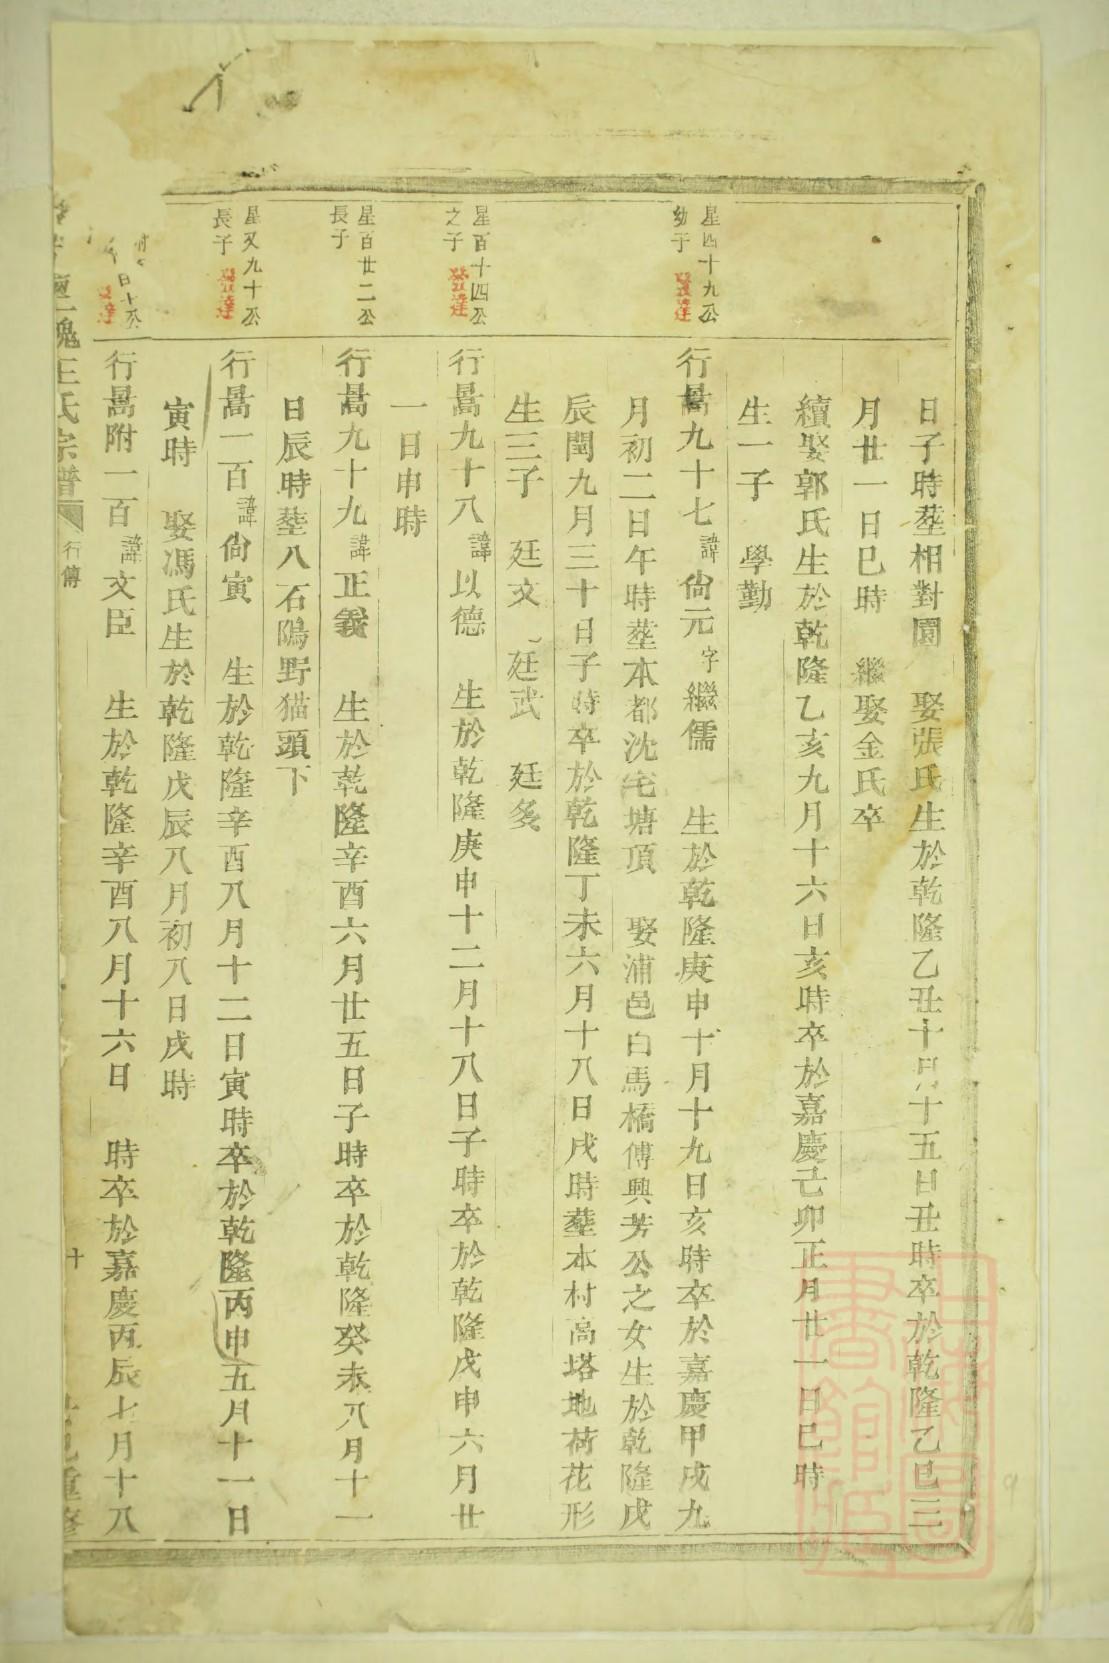 日子時塟相對園　娶張氏生於乾隆乙丑十月十五日丑時卒於乾隆乙巳三
月廿一日巳時　繼娶金氏卒
續娶郭氏生於乾隆乙亥九月十六日亥時卒於嘉慶己卯正月廿一日巳時
生一子　學勤
星四十九公
幼子　發達
行暠九十七諱尙元字繼儒　生於乾隆庚申十月十九日亥時卒於嘉慶甲戌九
月初二日午時塟本都沈宅塘頂　娶浦邑白馬橋傅興芳公之女生於乾隆戊
辰閏九月三十日子時卒於乾隆丁未六月十八日戌時塟本村高塔地荷花形
生三子　廷文　廷武　廷多
星百十四公
之子　發達
行暠九十八諱以德　生於乾隆庚申十二月十八日子時卒於乾隆戊申六月廿
一日申時
星百廿二公
長子
行暠九十九諱正義　生於乾隆辛酉六月廿五日子時卒於乾隆癸未八月十一
日辰時塟八石隝野猫頭下
星又九十公
長子　發達
行暠一百諱尙寅　生於乾隆辛酉八月十二日寅時卒於乾隆丙申五月十一日
寅時　娶馮氏生於乾隆戊辰八月初八日戌時
日十公
達
行暠附一百諱文臣　生於乾隆辛酉八月十六日　時卒於嘉慶丙辰七月十八
王氏宗譜　行傳　十　重修